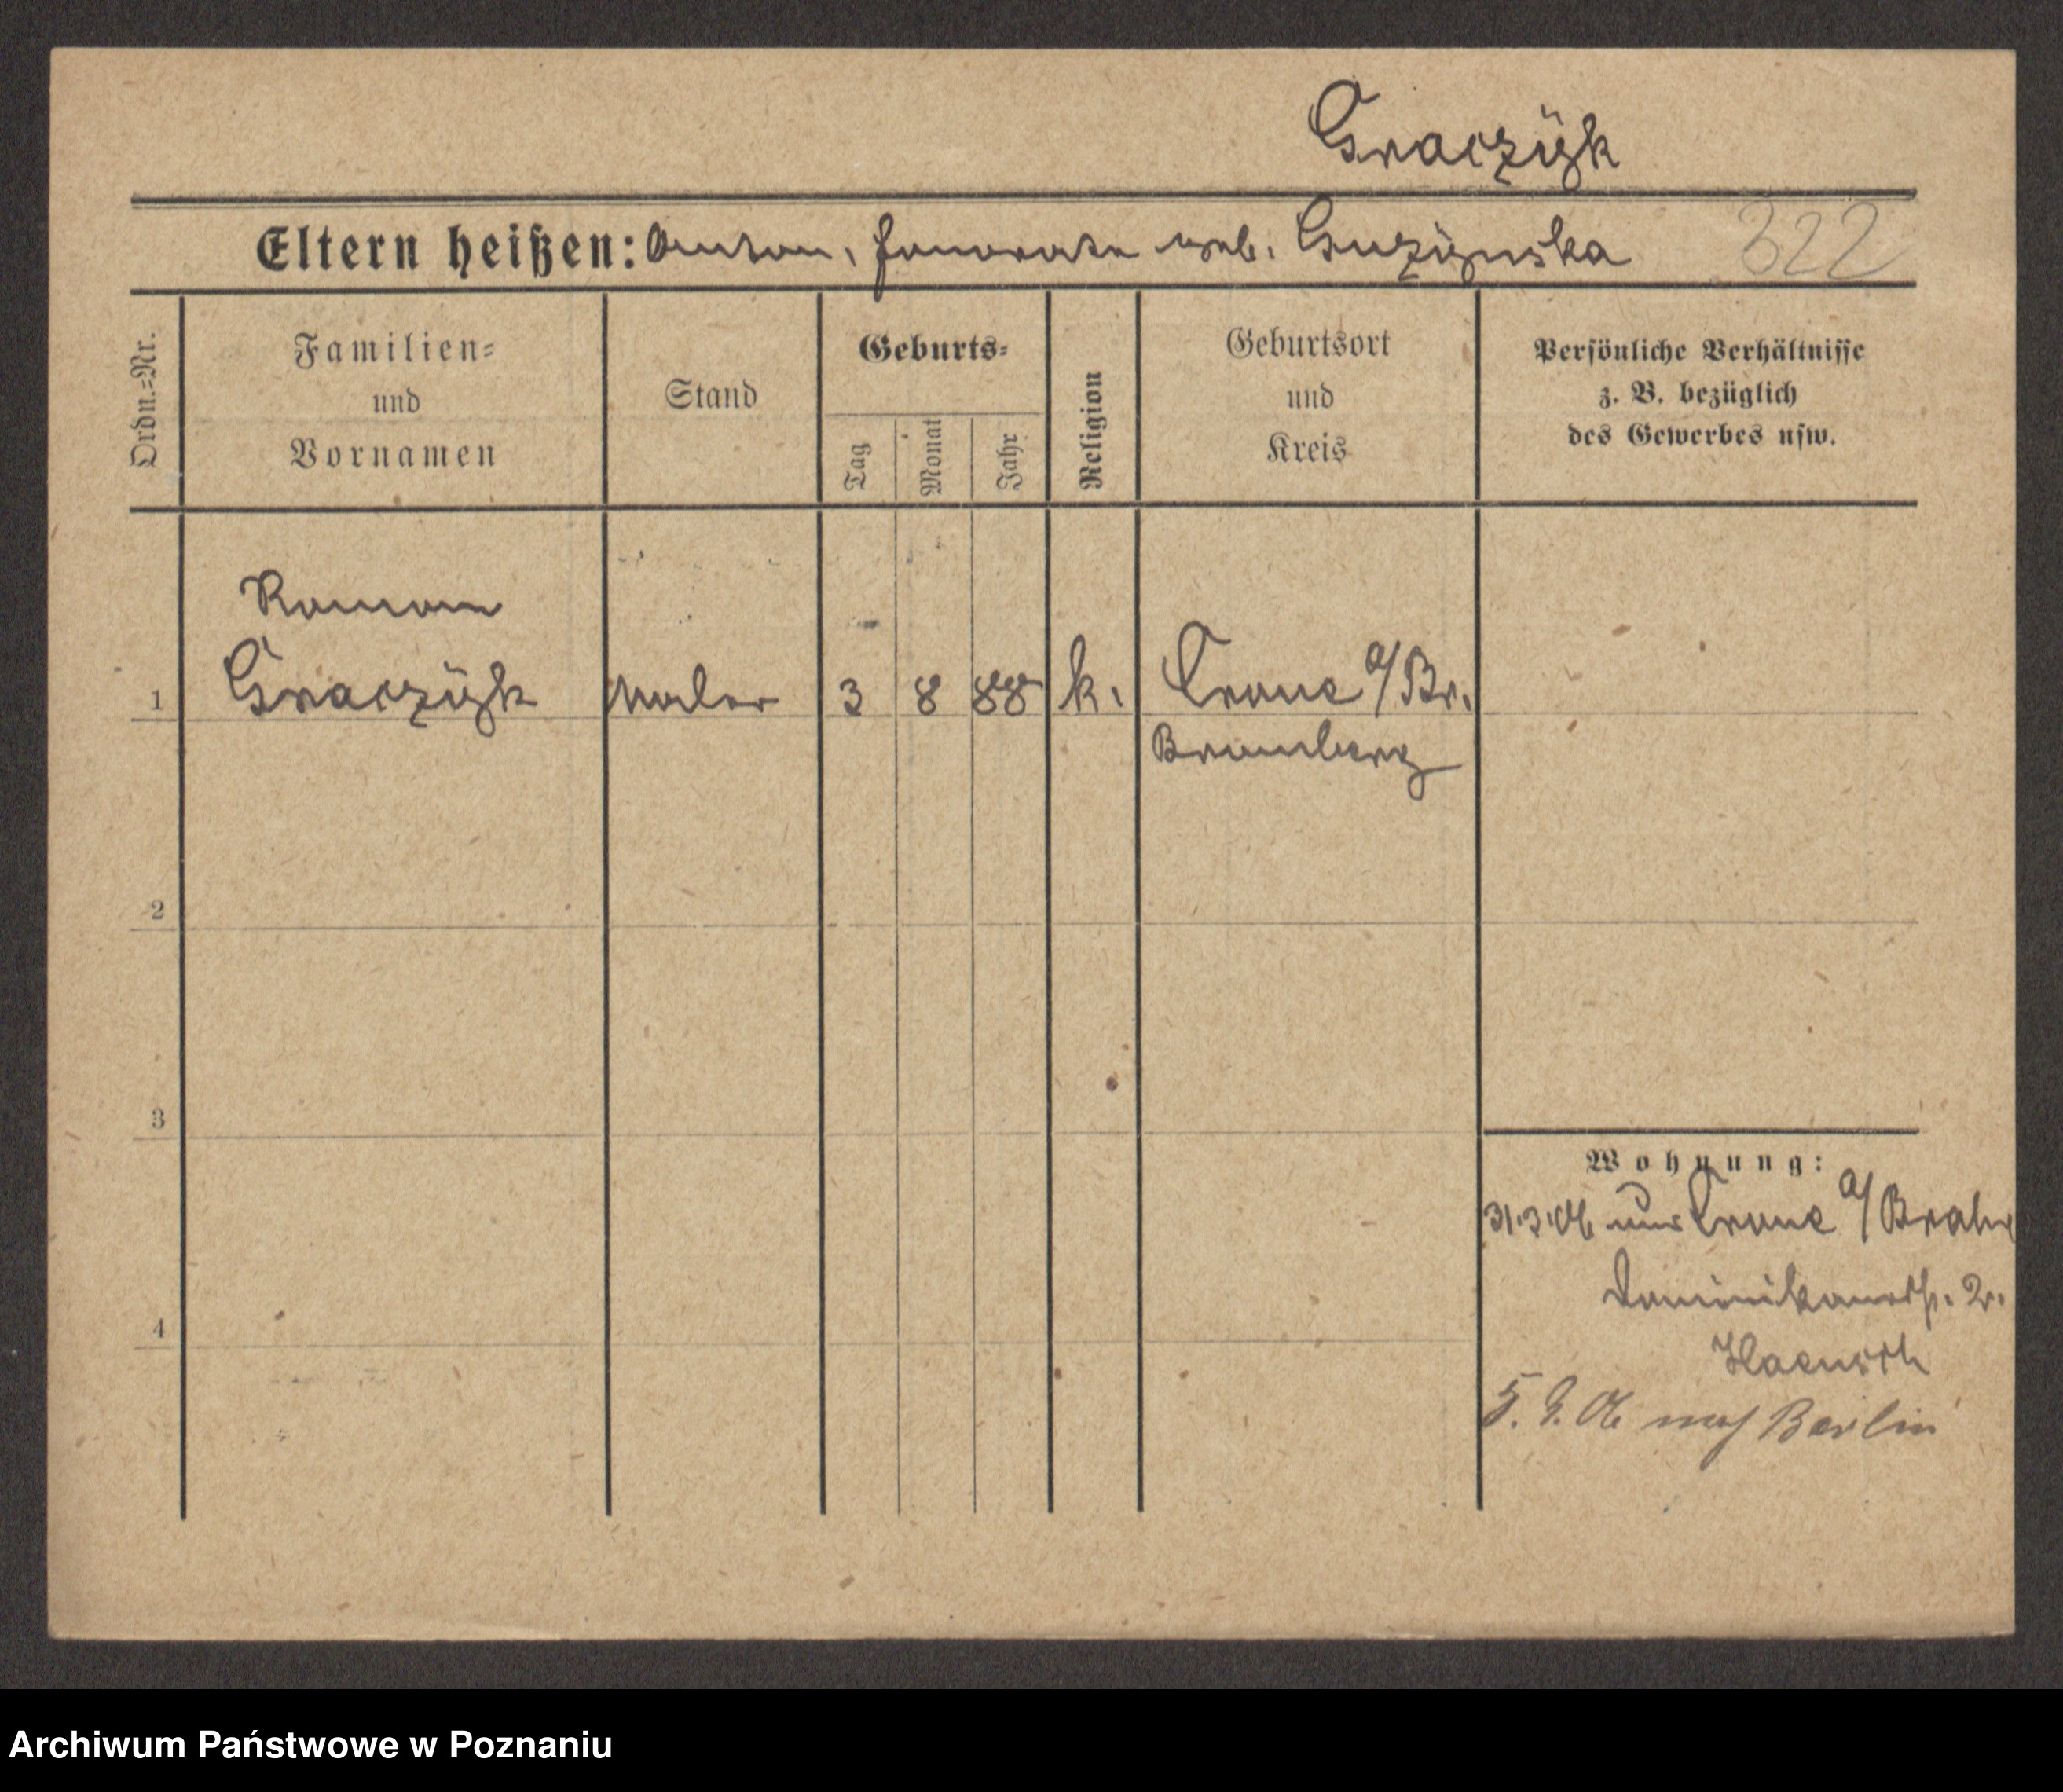 Graczÿk
Eltern heißen: Anton, Honorata geb. Guzÿnska 322
Ordn.=Nr.
Familien=
und
Vornamen
Stand
Geburts=
Tag
Monat
Jahr
Religion
Geburtsort
und
Kreis
Persönliche Verhältnisse
z. B. bezüglich
des Gewerbes usw.
Roman
1 Graczÿk Maler 3 8 88 k. Crone a/Br.
Bromberg
2
3
4
Wohnung:
31.3.06 aus Crone a/Brahe
Dominikanerstr. 2.
Haensch
5. 9. 06 nach Berlin
Archiwum Państwowe w Poznaniu